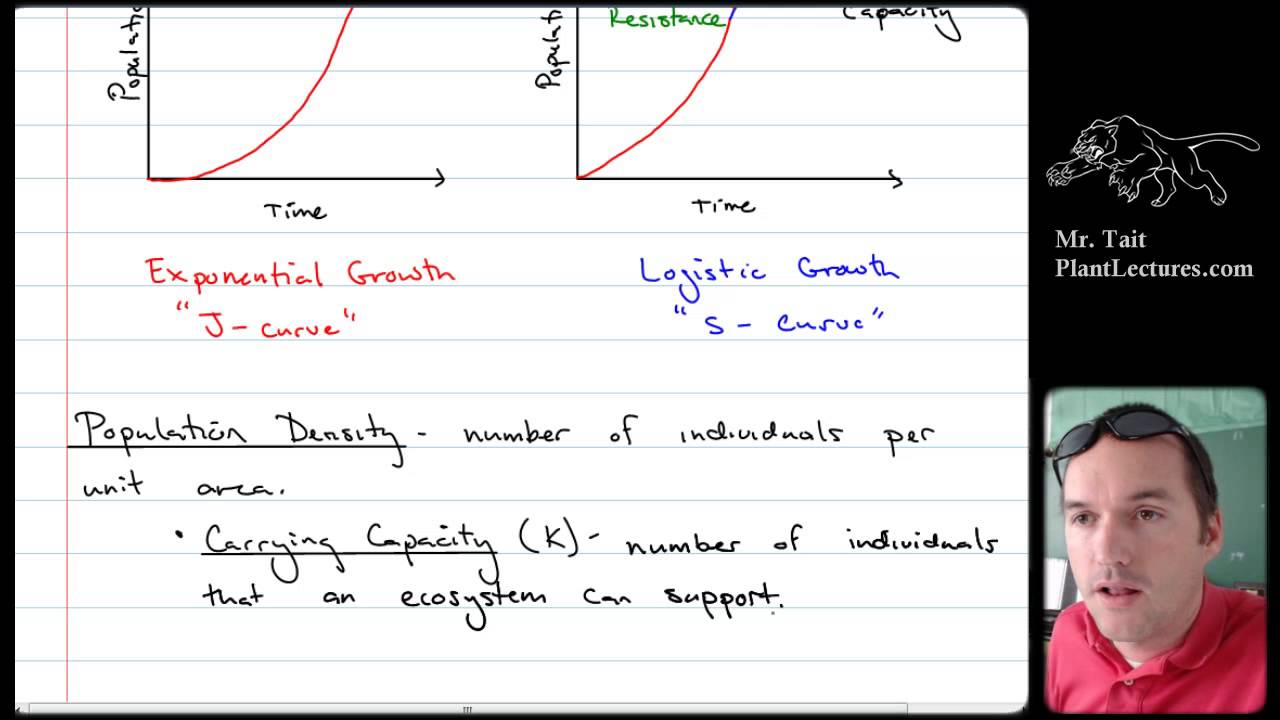 Populati
Resistance
Capacity
Populati
Time
Time
Exponential Growth
"J-curve"
Logistic Growth
"S-curve"
Population Density - number of individuals per
unit area.
• Carrying Capacity (K) - number of individuals
that an ecosystem can support.
Mr. Tait
PlantLectures.com